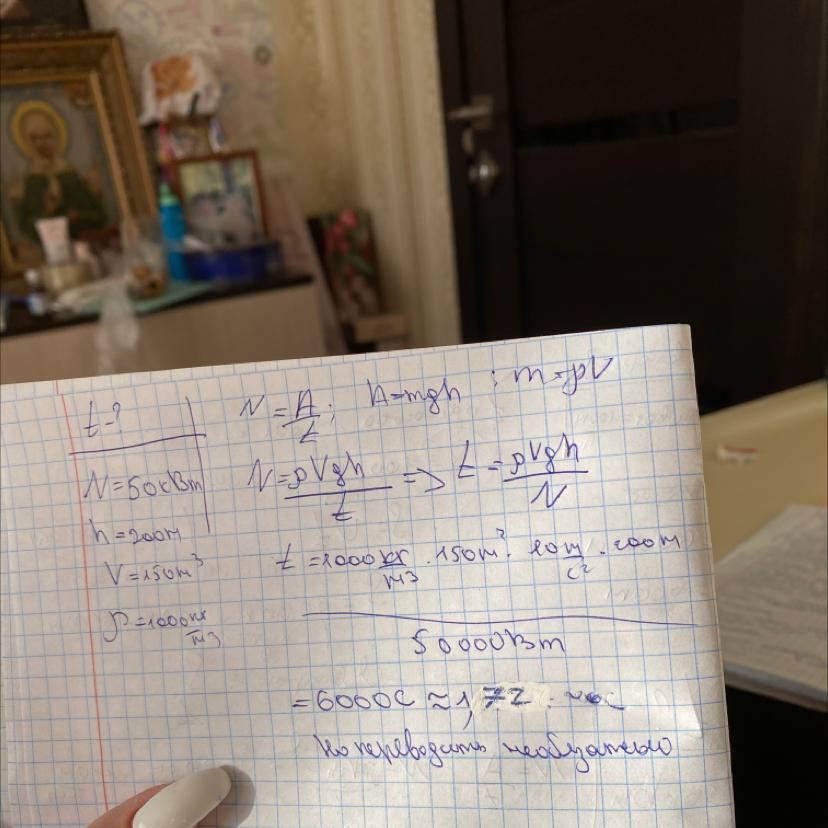 t-?
N=50кВт
h=200m
V=150m³
ρ=1000 кг/м3
N = A/t; A=mgh; m=ρV
N = ρVgh/t => t = ρVgh/N
t = 1000 кг/м3 · 150m³ · 10 m/c² · 200m
50000Вт
= 6000с ≈ 1,72 час
но переводить необязательно